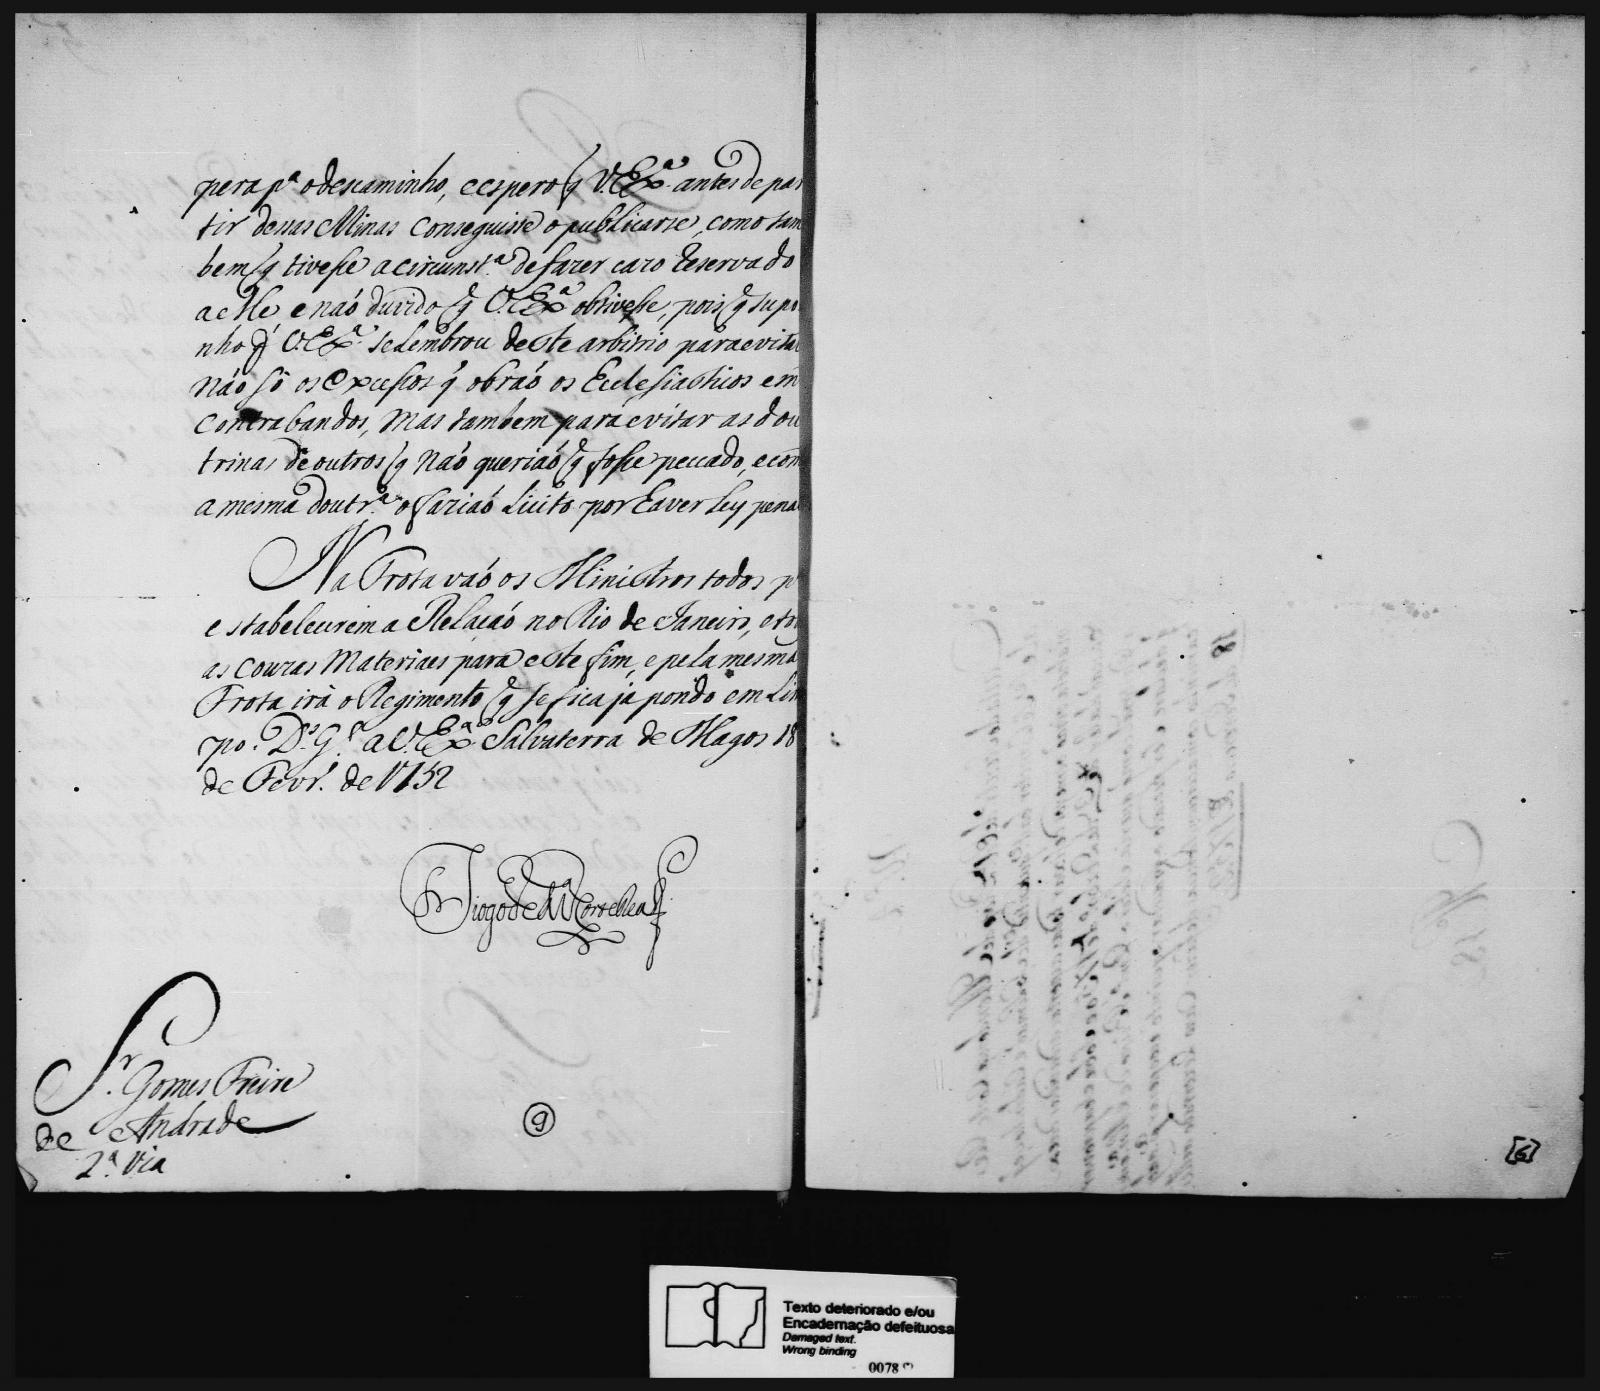 pera p.ª o descaminho, e espero q̃ V. Ex.ª antes de par
tir desas Minas conseguisse o publicarse, como tam
bem q̃ tivesse a circunst.ª de fazer cazo rezervado
a elle e naó duvido q̃ V. Ex.ª obtivesse, pois q̃ supo
nho q̃ V. Ex.ª se Lembrou deste arbitrio para evitar
não só os excessos q̃ obraó os Ecclesiasticos em
contrabandos, mas tambem para evitar as dou
trinas de outros q̃ naó queriaó q̃ fosse peccado, e com
a mesma doutr.ª o fariaó Licito por haver Ley penal
Na Frota vaó os Ministros todos p.
estabelecerem a Relaçaó no Rio de Janeiro, e to
as couzas Materiaes para este fim, e pela mesma
Frota irá o Regimento q̃ se fica ja pondo em Lim
po. D.s G.e a V. Ex.ª Salvaterra de Magos 18
de Fevr.º de 1752
Diogo de M.ça Corte Real
S.r Gomes Freire
de Andrade
2.ª Via
9
[6]
Texto deteriorado e/ou
Encadernação defeituosa
Damaged text.
Wrong binding
0078